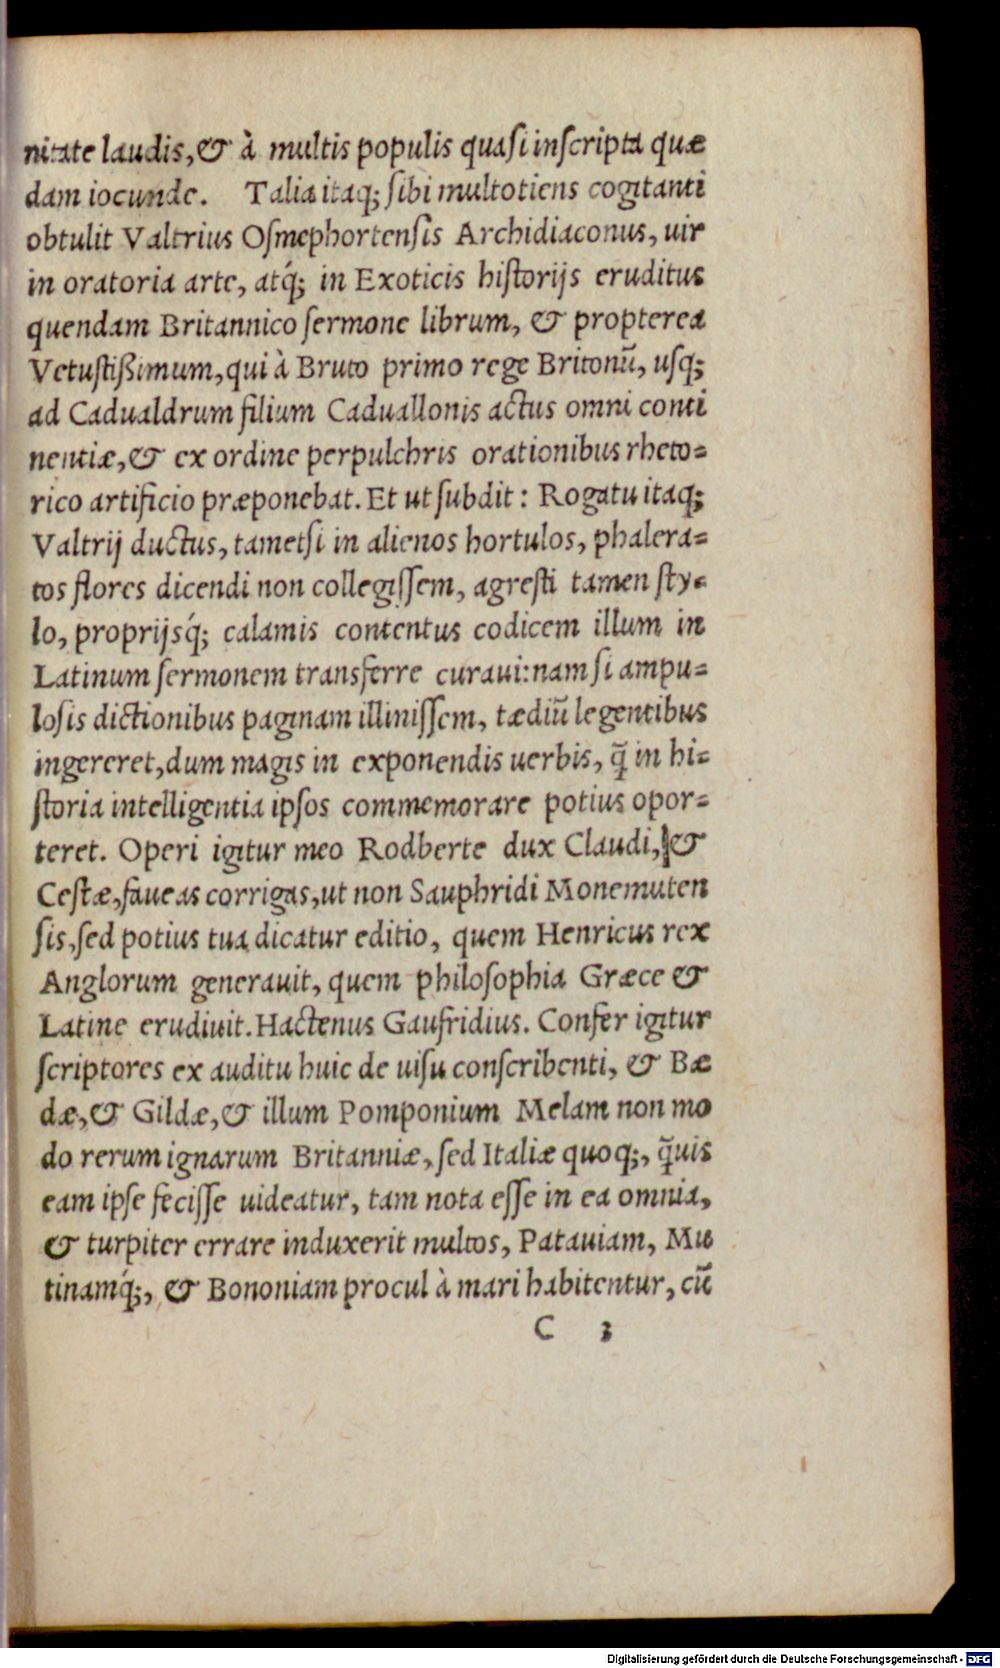 nitate laudis, & à multis populis quasi inscripta quæ
dam iocunde. Talia itaq; sibi multotiens cogitanti
obtulit Valtrius Osmephortensis Archidiaconus, uir
in oratoria arte, atq́; in Exoticis historijs eruditus
quendam Britannico sermone librum, & propterea
Vetustißimum, qui à Bruto primo rege Britonū, usq;
ad Cadualdrum filium Caduallonis actus omni conti
nentiæ, & ex ordine perpulchris orationibus rheto-
rico artificio præponebat. Et ut subdit: Rogatu itaq;
Valtrij ductus, tametsi in alienos hortulos, phalera-
tos flores dicendi non collegissem, agresti tamen sty-
lo, proprijsq́; calamis contentus codicem illum in
Latinum sermonem transferre curaui: nam si ampu-
losis dictionibus paginam illinissem, tædiū legentibus
ingereret, dum magis in exponendis uerbis, q̃ in hi-
storia intelligentia ipsos commemorare potius opor-
teret. Operi igitur meo Rodberte dux Claudi, &
Cestæ, faueas corrigas, ut non Sauphridi Monemuten
sis, sed potius tua dicatur editio, quem Henricus rex
Anglorum generauit, quem philosophia Græce &
Latine erudiuit. Hactenus Gaufridius. Confer igitur
scriptores ex auditu huic de uisu conscribenti, & Bæ
dæ, & Gildæ, & illum Pomponium Melam non mo
do rerum ignarum Britanniæ, sed Italiæ quoq;, q̃uis
eam ipse fecisse uideatur, tam nota esse in ea omnia,
& turpiter errare induxerit multos, Patauiam, Mu
tinamq́;, & Bononiam procul à mari habitentur, cū
C 3
Digitalisierung gefördert durch die Deutsche Forschungsgemeinschaft - DFG